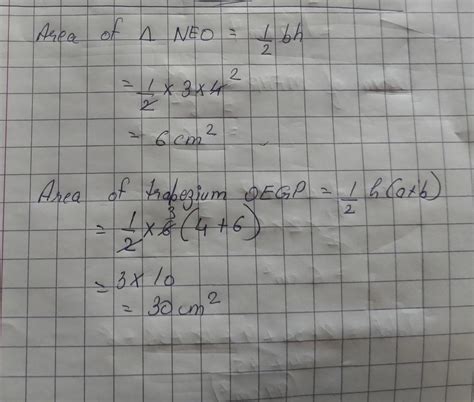 Area of Δ NEO = 1/2 bh
= 1/2 × 3 × 4 2
= 6 cm²
Area of trapezium OEGP = 1/2 h(a+b)
= 1/2 × 6 3 (4+6)
= 3 × 10
= 30 cm²